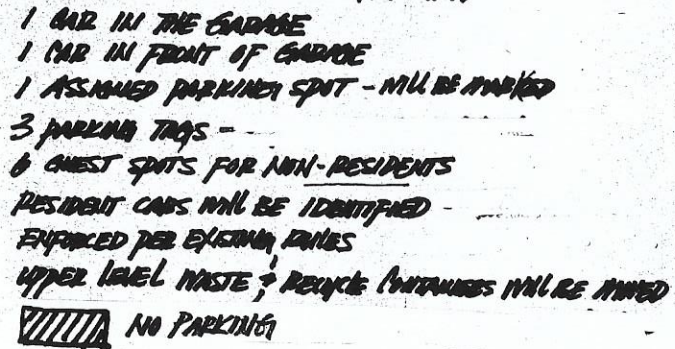 1 CAR IN THE GARAGE
1 CAR IN FRONT OF GARAGE
1 ASSIGNED PARKING SPOT - WILL BE MARKED
3 PARKING TAGS -
6 GUEST SPOTS FOR NON-RESIDENTS
RESIDENT CARS WILL BE IDENTIFIED -
ENFORCED PER EXISTING RULES
UPPER LEVEL WASTE & RECYCLE CONTAINERS WILL BE MOVED
NO PARKING